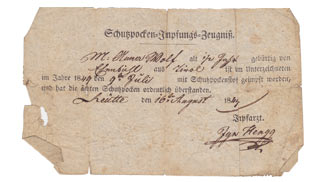 Schutzpocken-Impfungs-Zeugniß.
M. Anna Wolf alt 1/2 Jahr gebürtig von
aus Tirol ist im Unterzeichneten
im Jahre 1849 den 9t Juli mit Schutzpockenstoff geimpft worden,
und hat die ächten Schutzpocken ordentlich überstanden.
Reutte den 16t August 184
Impfarzt.